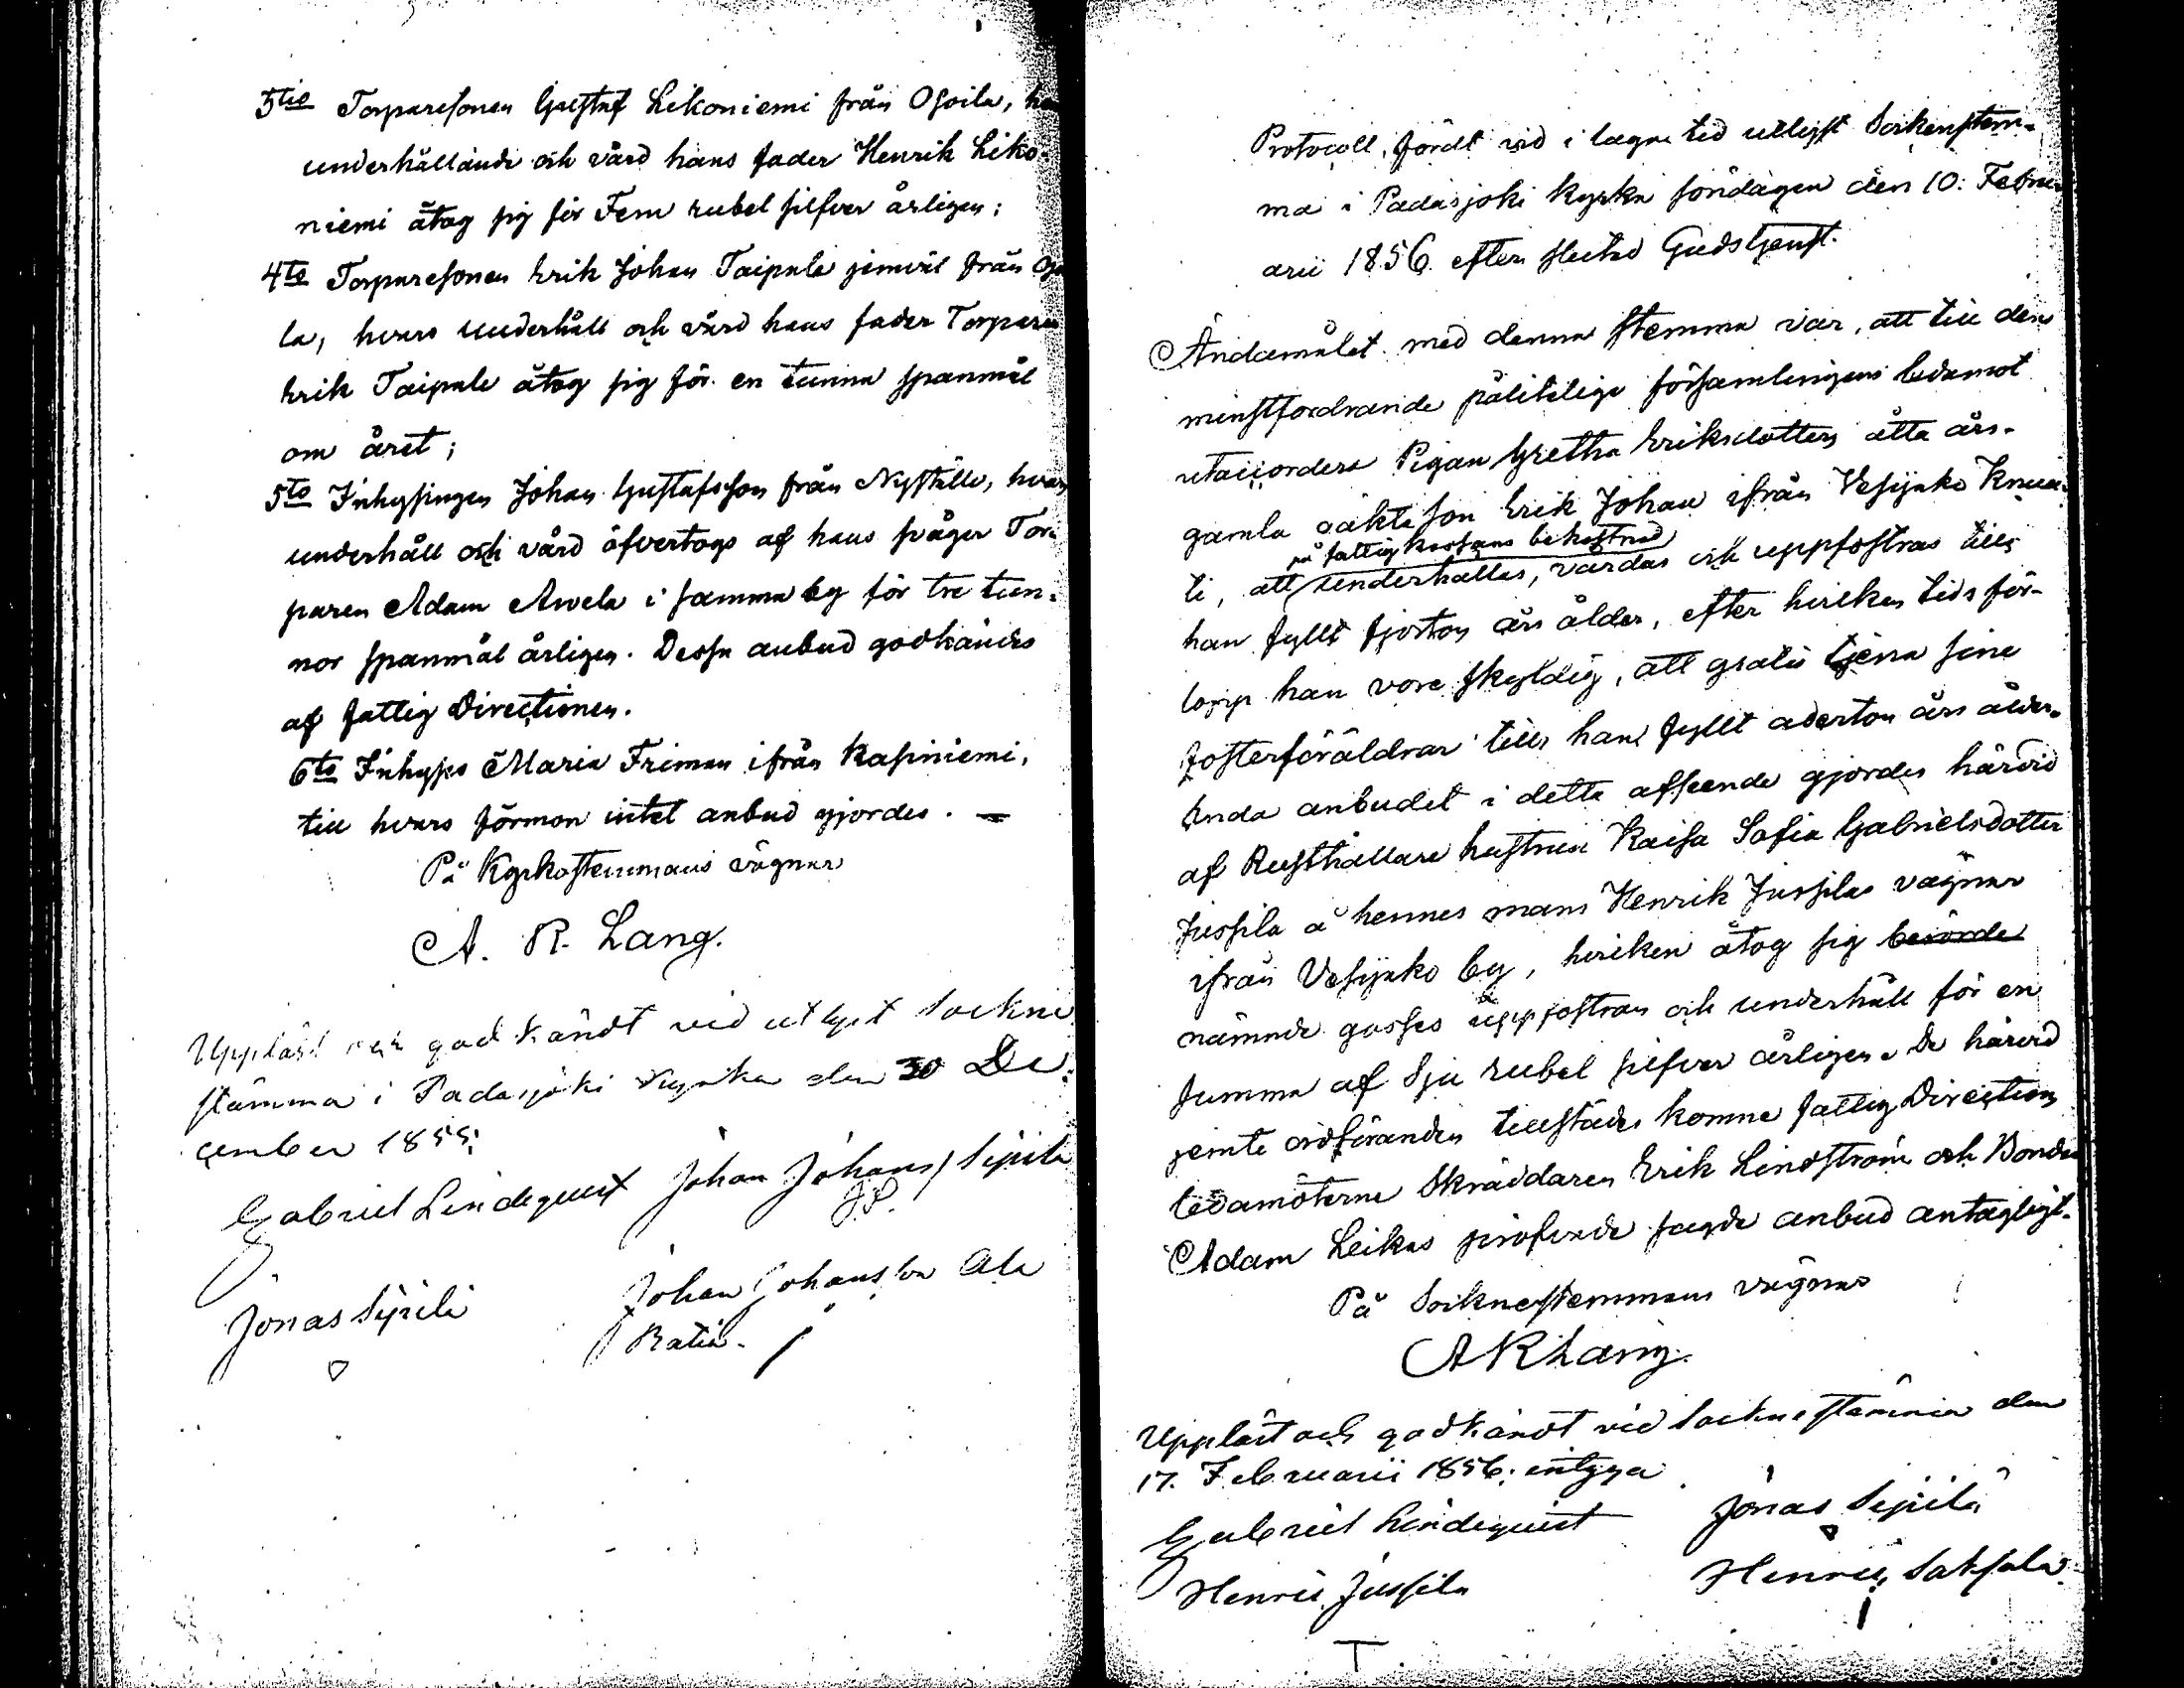 3tio Torparesonen Gustaf Likoniemi från Osoila,
underhållande och vård hans fader Henrik Liko-
niemi åtog sig för Fem rubel silfver årligen;
4to Torparesonen Erik Johan Taipale jemväl från
la, hvars underhåll och vård hans fader Torparen
Erik Taipale åtog sig för en tunna spanmål
om året;
5to Inhysingen Johan Gustafsson från Nyställe, hvars
underhåll och vård öfvertogs af hans svåger Tor-
paren Adam Arvela i samma by för tre tun-
nor spanmål årligen. Dessa anbud godkändes
af fattig Directionen.
6to Inhyses Maria Friman ifrån Kasiniemi,
till hvars förmon intet anbud gjordes. —
På Kyrkostemmans vägnar
A. R. Lang.
Uppläst och godkändt vid utlyst Sockne
stämma i Padasjoki Kyrka den 30 De-
cember 1855;
Gabriel Lindequist Johan Johans/ Sipilä
J.S.
Jonas Sipilä Johan Johansson Ala
Ratia.
Protocoll, fördt vid i lagne tid utlyst Sockenstem-
ma i Padasjoki kyrka söndagen den 10: Febru-
arii 1856 efter slutad Gudstjenst.
Ändamålet med denna stemma var, att till den
minstfordrande pålitelige församlingens ledamot
utaccordera Pigan Gretha Eriksdotters åtta års
gamla oäkta son Erik Johan ifrån Vesijako
på fattigkassans bekostnad
ti, att underhållas, vårdas och uppfostras tills
han fyllt fjorton års ålder, efter hvilken tids för-
lopp han vore skyldig, att gratis tjena sine
fosterföräldrar tills han fyllt aderton års ålder.
Enda anbudet i detta afseende gjordes härvid
af Rusthållare hustrun Kaisa Sofia Gabrielsdotter
Jussila å hennes mans Henrik Jussilas vägnar
ifrån Vesijako by, hvilken åtog sig berörde
nämnde gosses uppfostran och underhåll för en
summa af Sju rubel silfver årligen. De härvid
jemte ordföranden tillstädes komne fattig Directions
ledamöterne Skräddaren Erik Lindström och Bonden
Adam Leikas pröfvade sagde anbud antagligt.
På Socknestemmans vägnar
A R Lang.
Uppläst och godkändt vid Socknestämma den
17. Februarii 1856; intyga
Gabriel Lindequist Jonas Sipilä
Henric Jussila Henric Saksala